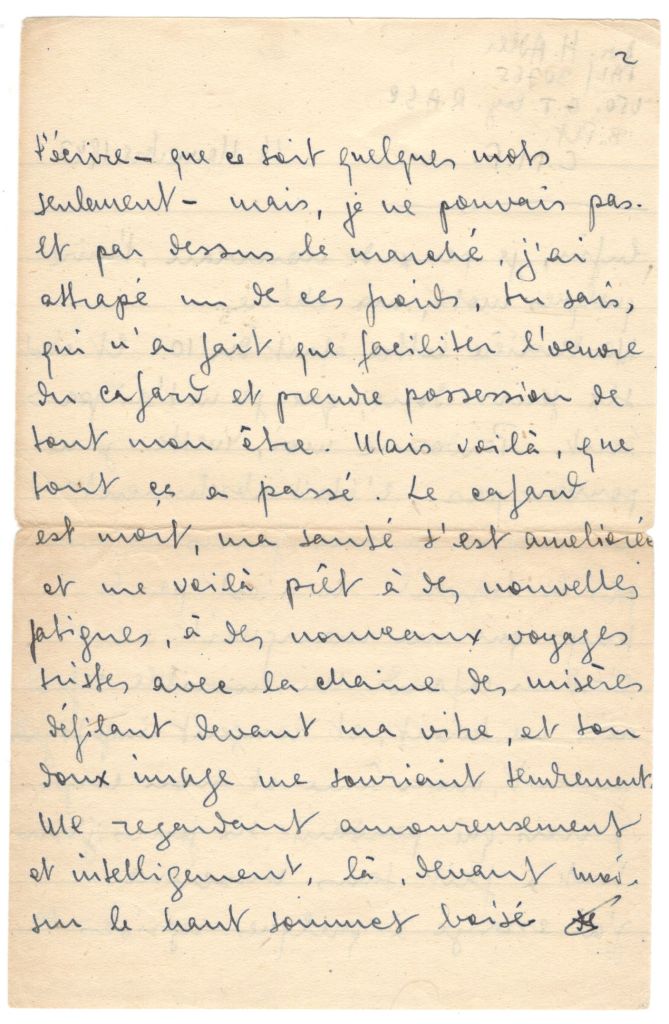 2
t'écrire - que ce soit quelques mots
seulement - mais, je ne pouvais pas.
Et par dessus le marché, j'ai
attrapé un de ces froids, tu sais,
qui n'a fait que faciliter l'oeuvre
du cafard et prendre possession de
tout mon être. Mais voilà, que
tout ça a passé. Le cafard
est mort, ma santé s'est ameliorée
et me voilà prêt à des nouvelles
fatigues, à des nouveaux voyages
tristes avec la chaine des misères
défilant devant ma vitre, et ton
doux image me souriant tendrement.
Me regardant amoureusement
et intelligement, là, devant moi.
sur le haut sommet boisé